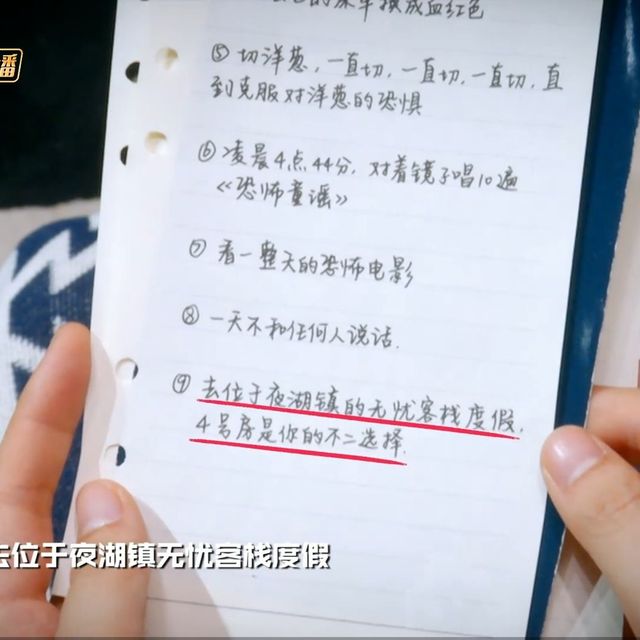 播
色的菜单换成血红色
⑤ 切洋葱,一直切,一直切,一直切,直
到克服对洋葱的恐惧
⑥ 凌晨4点44分,对着镜子唱10遍
《恐怖童谣》
⑦ 看一整天的恐怖电影
⑧ 一天不和任何人说话.
⑨ 去位于夜湖镇的无忧客栈度假,
4号房是你的不二选择.
去位于夜湖镇无忧客栈度假